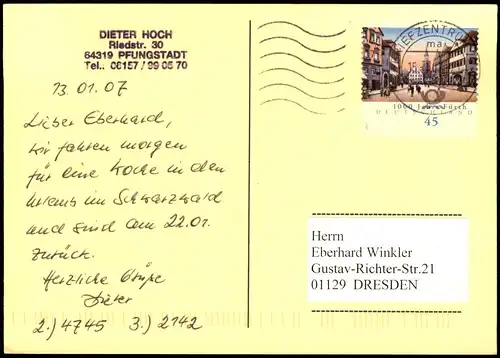 DIETER HOCH
Riedstr. 30
64319 PFUNGSTADT
Tel.: 06157 / 99 05 70
13.01.07
Lieber Eberhard,
wir fahren morgen
für eine Woche in den
Urlaub im Schwarzwald
und sind am 22.01.
zurück.
Herzliche Grüße
Dieter
2.) 4745 3.) 2142
BRIEFZENTRUM
1000 Jahre Fürth
DEUTSCHLAND
45
Herrn
Eberhard Winkler
Gustav-Richter-Str.21
01129 DRESDEN